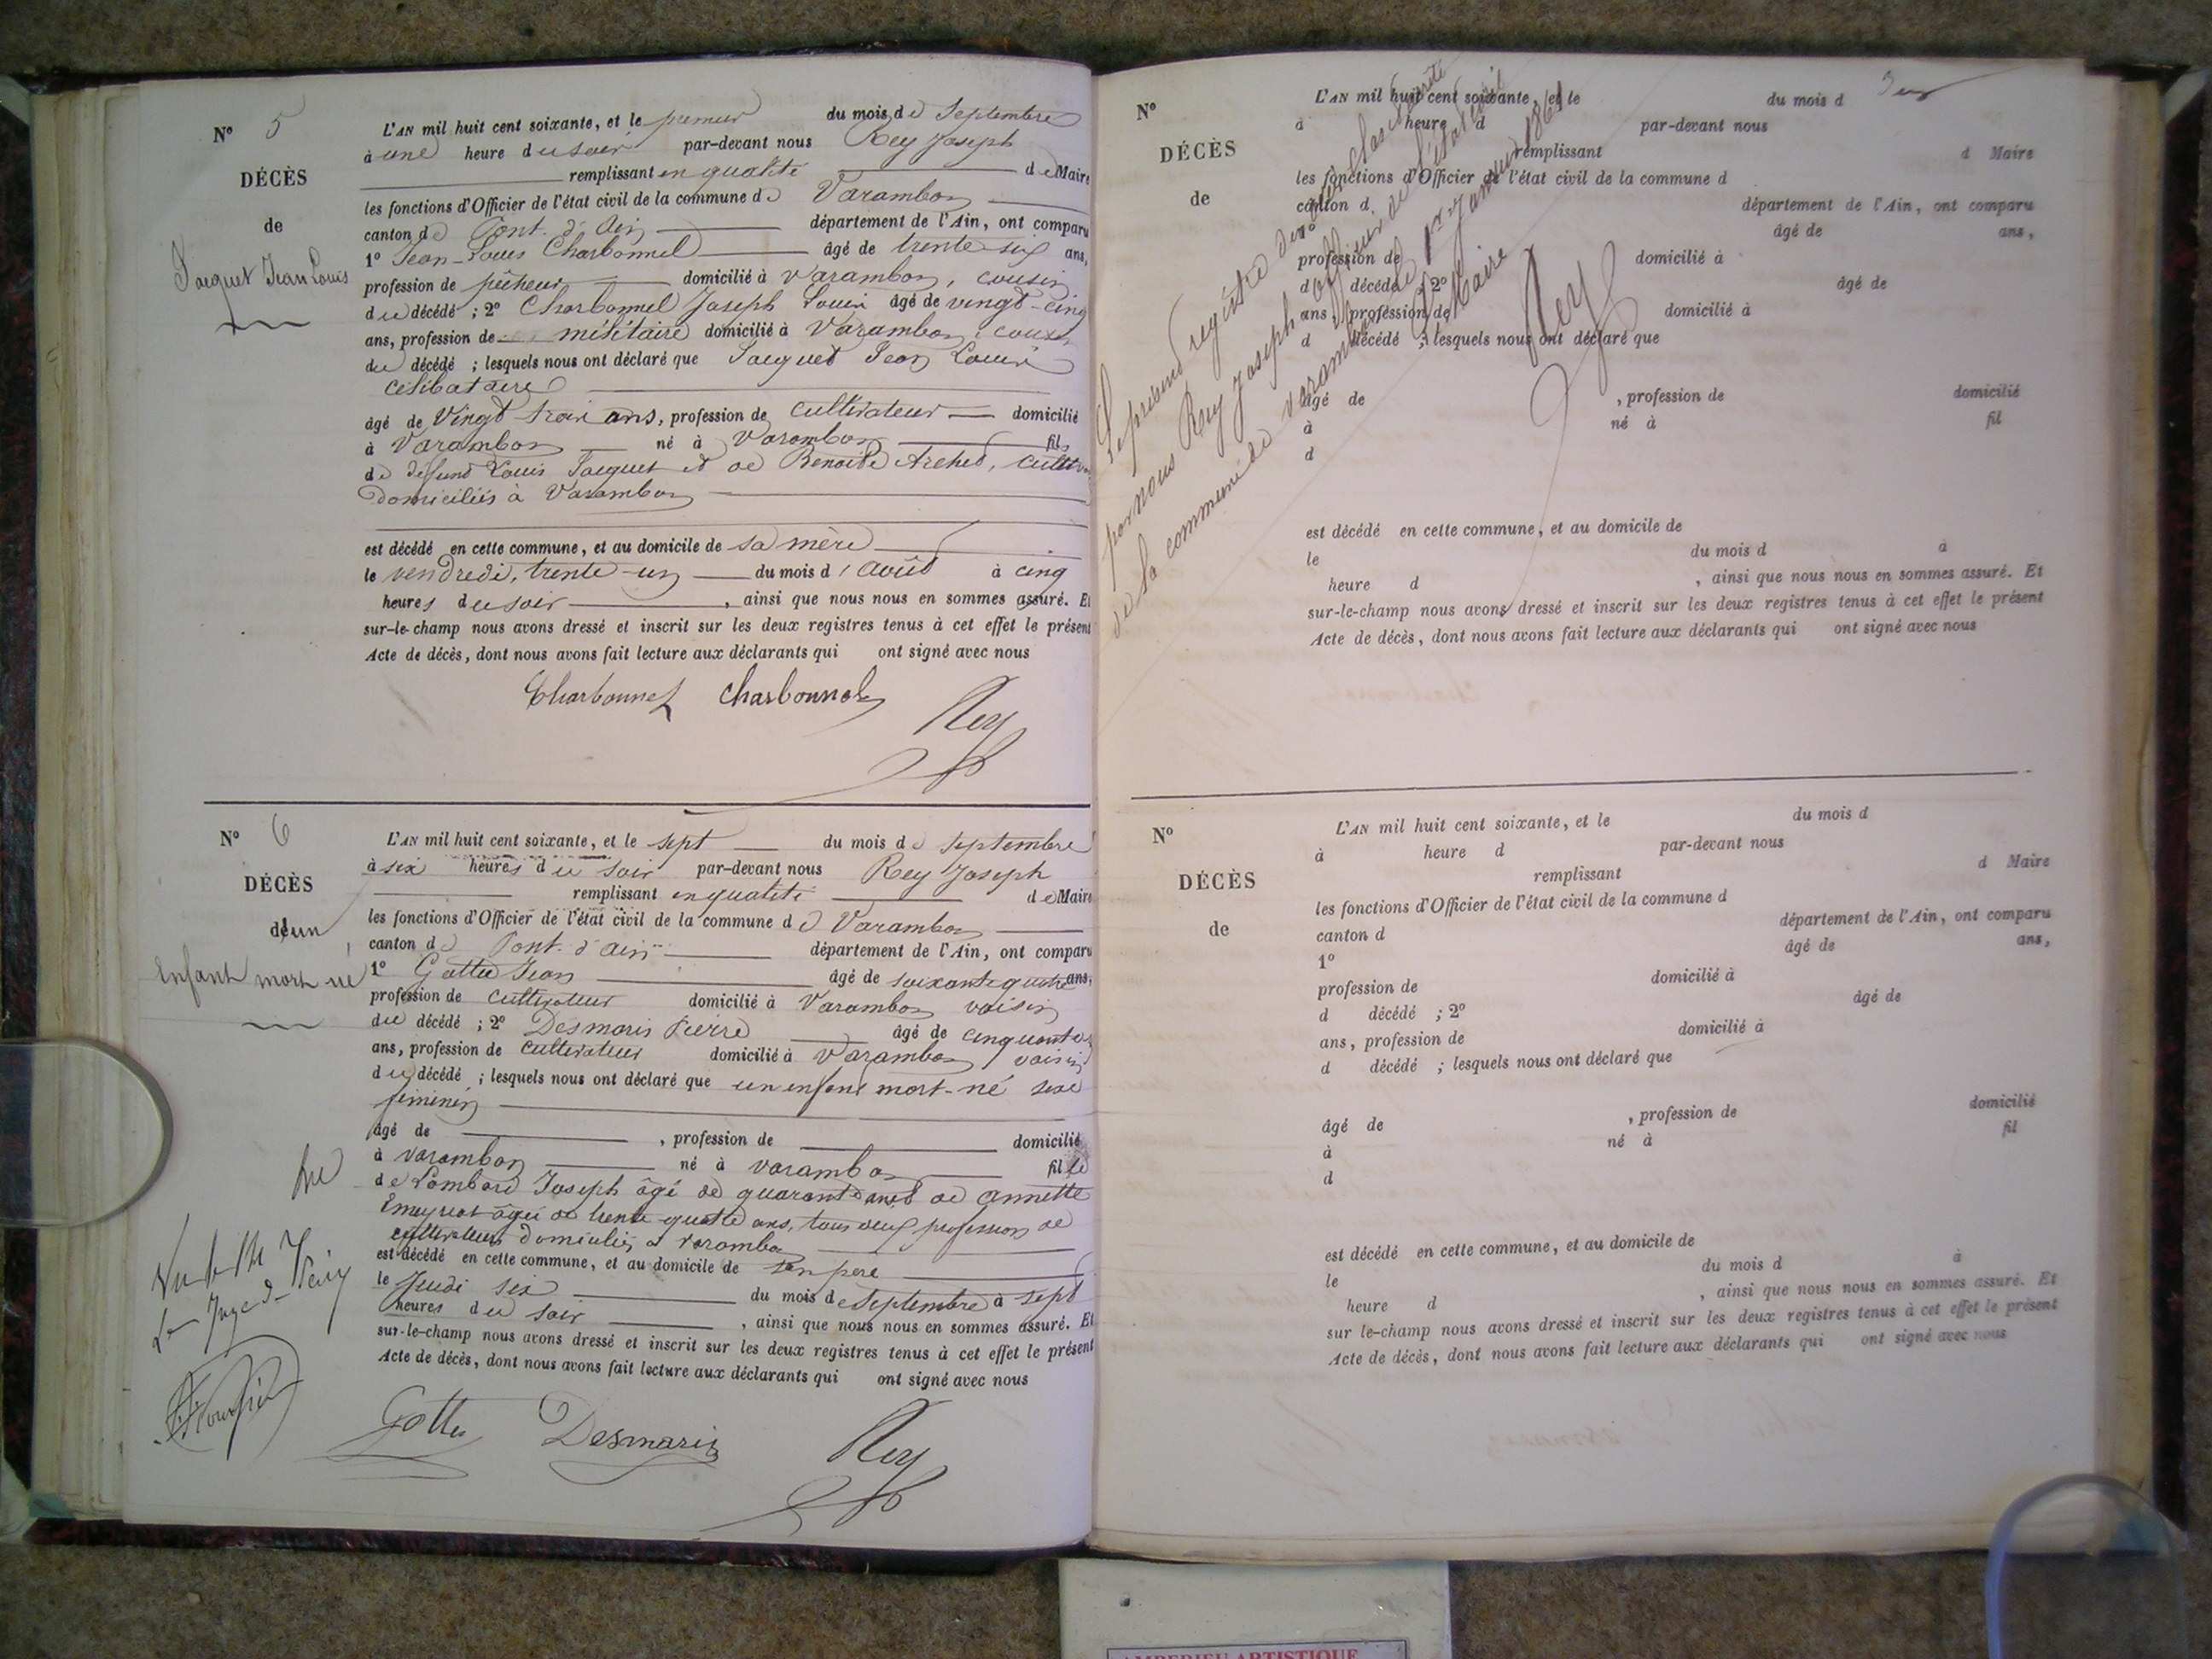 N° 5
DÉCÈS
de
Jacquet Jean Louis
L'AN mil huit cent soixante, et le premier du mois de Septembre
à une heure du soir par-devant nous Rey Joseph
remplissant en qualité de Maire
les fonctions d'Officier de l'état civil de la commune de Varambon
canton de Pont-d'Ain département de l'Ain, ont comparu
1° Jean-Louis Charbonnel âgé de trente six ans,
profession de pêcheur domicilié à Varambon, cousin
du décédé ; 2° Charbonnel Joseph Louis âgé de vingt-cinq
ans, profession de militaire domicilié à Varambon, cousin
du décédé ; lesquels nous ont déclaré que Jacquet Jean Louis
célibataire
âgé de Vingt trois ans, profession de cultivateur domicilié
à Varambon né à Varambon fils
de défunt Louis Jacquet et de Benoite
Domiciliés à Varambon
est décédé en cette commune, et au domicile de sa mère
le vendredi, trente-un du mois d'août à cinq
heures du soir, ainsi que nous nous en sommes assuré. Et
sur-le-champ nous avons dressé et inscrit sur les deux registres tenus à cet effet le présent
Acte de décès, dont nous avons fait lecture aux déclarants qui ont signé avec nous
Charbonnel Charbonnel
Rey
N° 6
DÉCÈS
d'un
Enfant mort né
L'AN mil huit cent soixante, et le sept du mois de septembre
à six heures du soir par-devant nous Rey Joseph
remplissant en qualité de Maire
les fonctions d'Officier de l'état civil de la commune de Varambon
canton de Pont-d'ain département de l'Ain, ont comparu
1° Gottu Jean âgé de soixante quatre ans,
profession de cultivateur domicilié à Varambon voisin
du décédé ; 2° Desmaris Pierre âgé de cinquante
ans, profession de cultivateur domicilié à Varambon voisin
du décédé ; lesquels nous ont déclaré que un enfant mort-né sexe
féminin
âgé de , profession de domicilié
à varambon né à varambon fille
de Lombard Joseph âgé de quarante ans et de annette
âgée de trente quatre ans, tous deux profession de
cultivateurs domiciliés à varambon
est décédé en cette commune, et au domicile de son père
le Jeudi six du mois de Septembre à sept
heures du soir , ainsi que nous nous en sommes assuré. Et
sur-le-champ nous avons dressé et inscrit sur les deux registres tenus à cet effet le présent
Acte de décès, dont nous avons fait lecture aux déclarants qui ont signé avec nous
Juge de
Desmaris
Rey
N°
DÉCÈS
de
L'AN mil huit cent soixante, et le du mois d
à heure d par-devant nous
remplissant d Maire
les fonctions d'Officier de l'état civil de la commune d
canton d département de l'Ain, ont comparu
1° âgé de ans,
profession de domicilié à
d décédé ; 2° âgé de
ans, profession de domicilié à
d décédé ; lesquels nous ont déclaré que
âgé de , profession de domicilié
à né à fil
d
est décédé en cette commune, et au domicile de
le du mois d à
heure d , ainsi que nous nous en sommes assuré. Et
sur-le-champ nous avons dressé et inscrit sur les deux registres tenus à cet effet le présent
Acte de décès, dont nous avons fait lecture aux déclarants qui ont signé avec nous
Le présent registre
par nous Rey Joseph officier de l'état civil
de la commune de varambon le 1er Janvier 1861
Le Maire
Rey
N°
DÉCÈS
de
L'AN mil huit cent soixante, et le du mois d
à heure d par-devant nous
remplissant d Maire
les fonctions d'Officier de l'état civil de la commune d
canton d département de l'Ain, ont comparu
1° âgé de ans,
profession de domicilié à
d décédé ; 2° âgé de
ans, profession de domicilié à
d décédé ; lesquels nous ont déclaré que
âgé de , profession de domicilié
à né à fil
d
est décédé en cette commune, et au domicile de
le du mois d à
heure d , ainsi que nous nous en sommes assuré. Et
sur le-champ nous avons dressé et inscrit sur les deux registres tenus à cet effet le présent
Acte de décès, dont nous avons fait lecture aux déclarants qui ont signé avec nous
AMBERIEU ARTISTIQUE